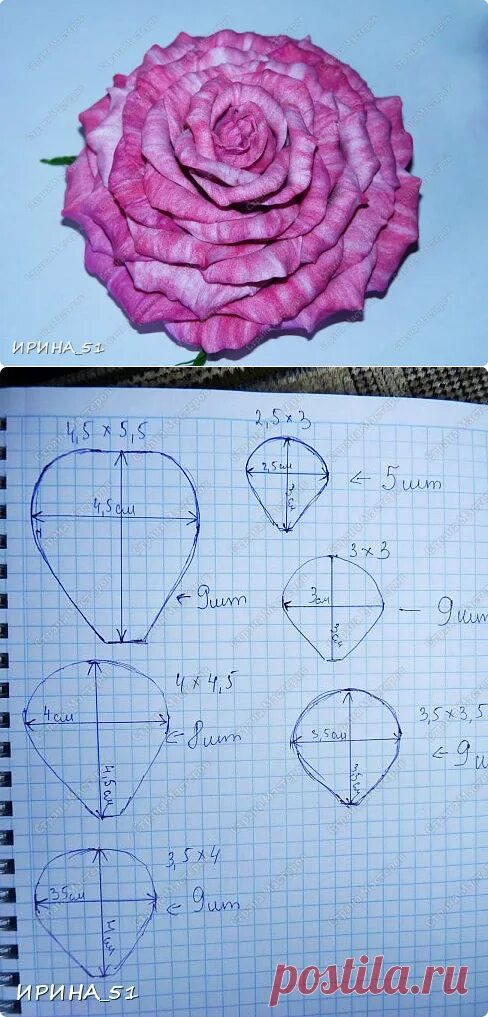 ИРИНА_51
4,5 x 5,5
4,5см
← 9шт
2,5 x 3
2,5см
3см
← 5шт
3 x 3
3см
3см
— 9шт
4 x 4,5
4см
4,5см
← 8шт
3,5 x 3,5
3,5см
3,5см
← 9ш
3,5 x 4
35см
4см
← 9шт
ИРИНА_51
postila.ru